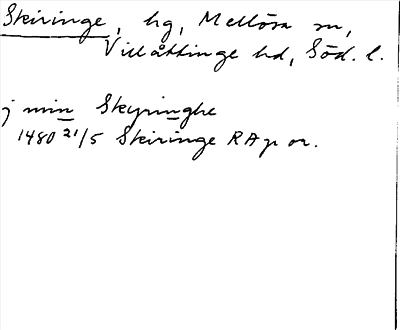 Skiringe, hg, Mellösa sn,
Villåttinge hd, Söd. l.
j min Skyringhe
1480 21/5 Skiringe RAp or.